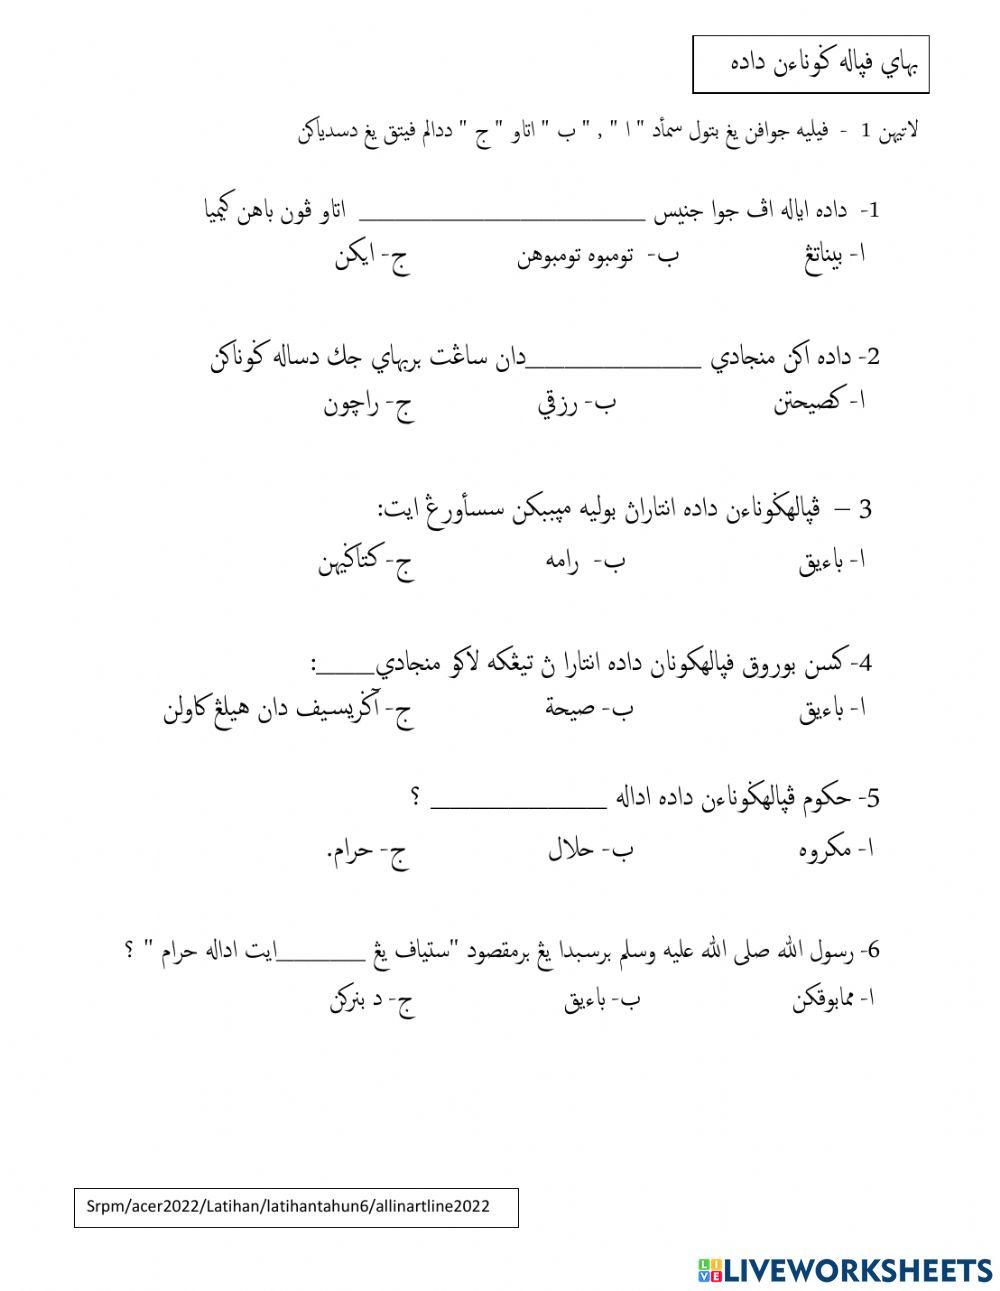 بهاي ڤپاله ݢوناءن داده
لاتيهن 1 - ڤيليه جوافن يڠ بتول سمأد " ا " , " ب " اتاو " ج " ددالم ڤيتق يڠ دسدياكن
1- داده اياله اڤ جوا جنيس ______________________ اتاو ڤون باهن كيميا
ا- بيناتڠ ب- تومبوه تومبوهن ج- ايكن
2- داده اكن منجادي ______________دان ساڠت بربهاي جك دساله ݢوناكن
ا- كصيحتن ب- رزقي ج- راچون
3 – ڤپالهݢوناءن داده انتاراڽ بوليه مپببكن سسأورڠ ايت:
ا- باءيق ب- رامه ج- كتاݢيهن
4- كسن بوروق ڤپالهݢونان داده انتارا ڽ تيڠكه لاكو منجادي_____:
ا- باءيق ب- صيحة ج- آݢريسيف دان هيلڠ كاولن
5- حكوم ڤپالهݢوناءن داده اداله ______________ ؟
ا- مكروه ب- حلال ج- حرام.
6- رسول الله صلى الله عليه وسلم برسبدا يڠ برمقصود "ستياف يڠ _______ايت اداله حرام " ؟
ا- ممابوقكن ب- باءيق ج- د بنركن
Srpm/acer2022/Latihan/latihantahun6/allinartline2022
LIVEWORKSHEETS